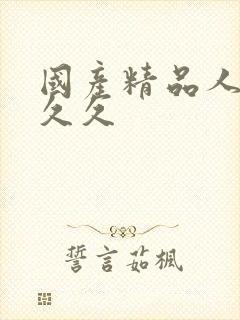 國產精品人
久久
誓言茹楓